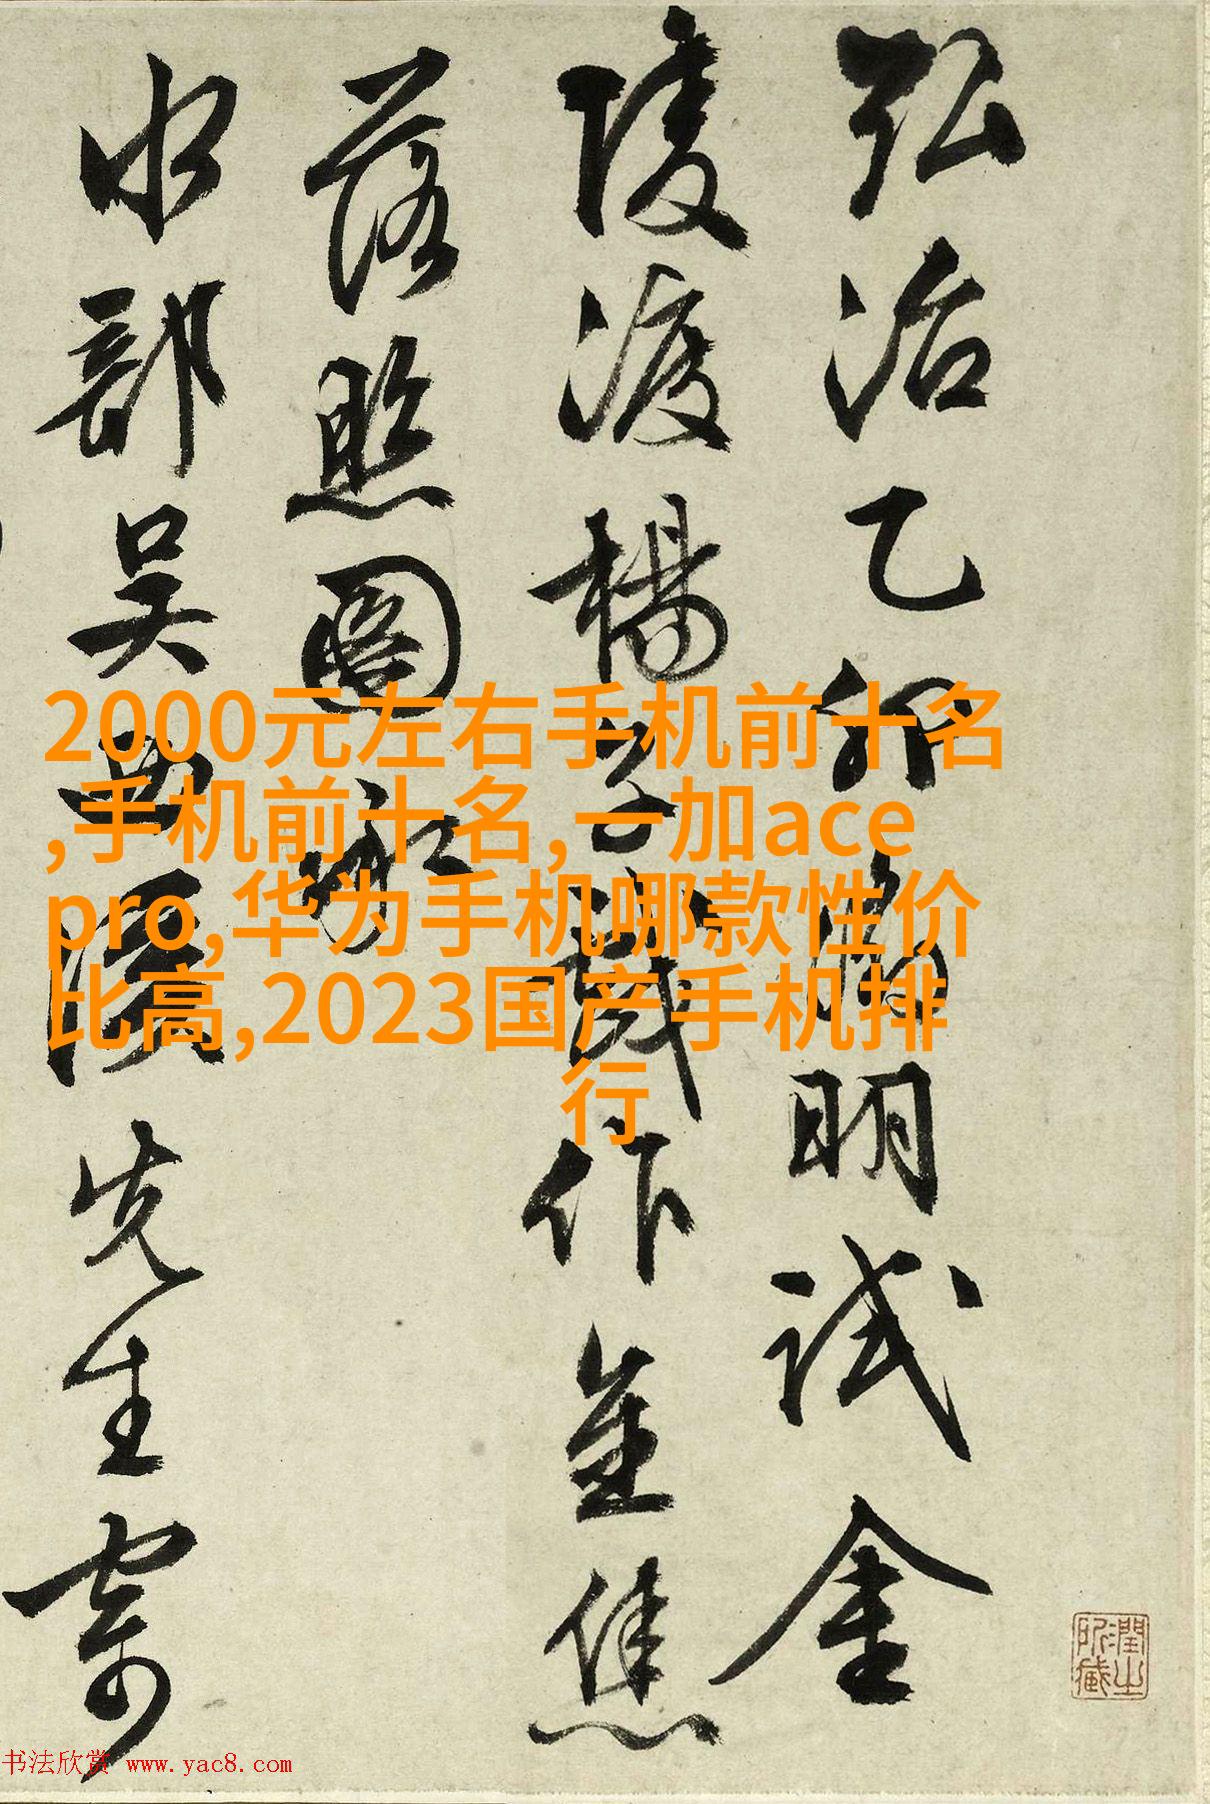 弘治乙卯明試金
陵渡楊子作金焦
落照圖
水部吳西溪先生寄
2000元左右手机前十名
,手机前十名,一加ace
pro,华为手机哪款性价
比高,2023国产手机排
行
潤之
所藏
书法欣赏 www.yac8.com